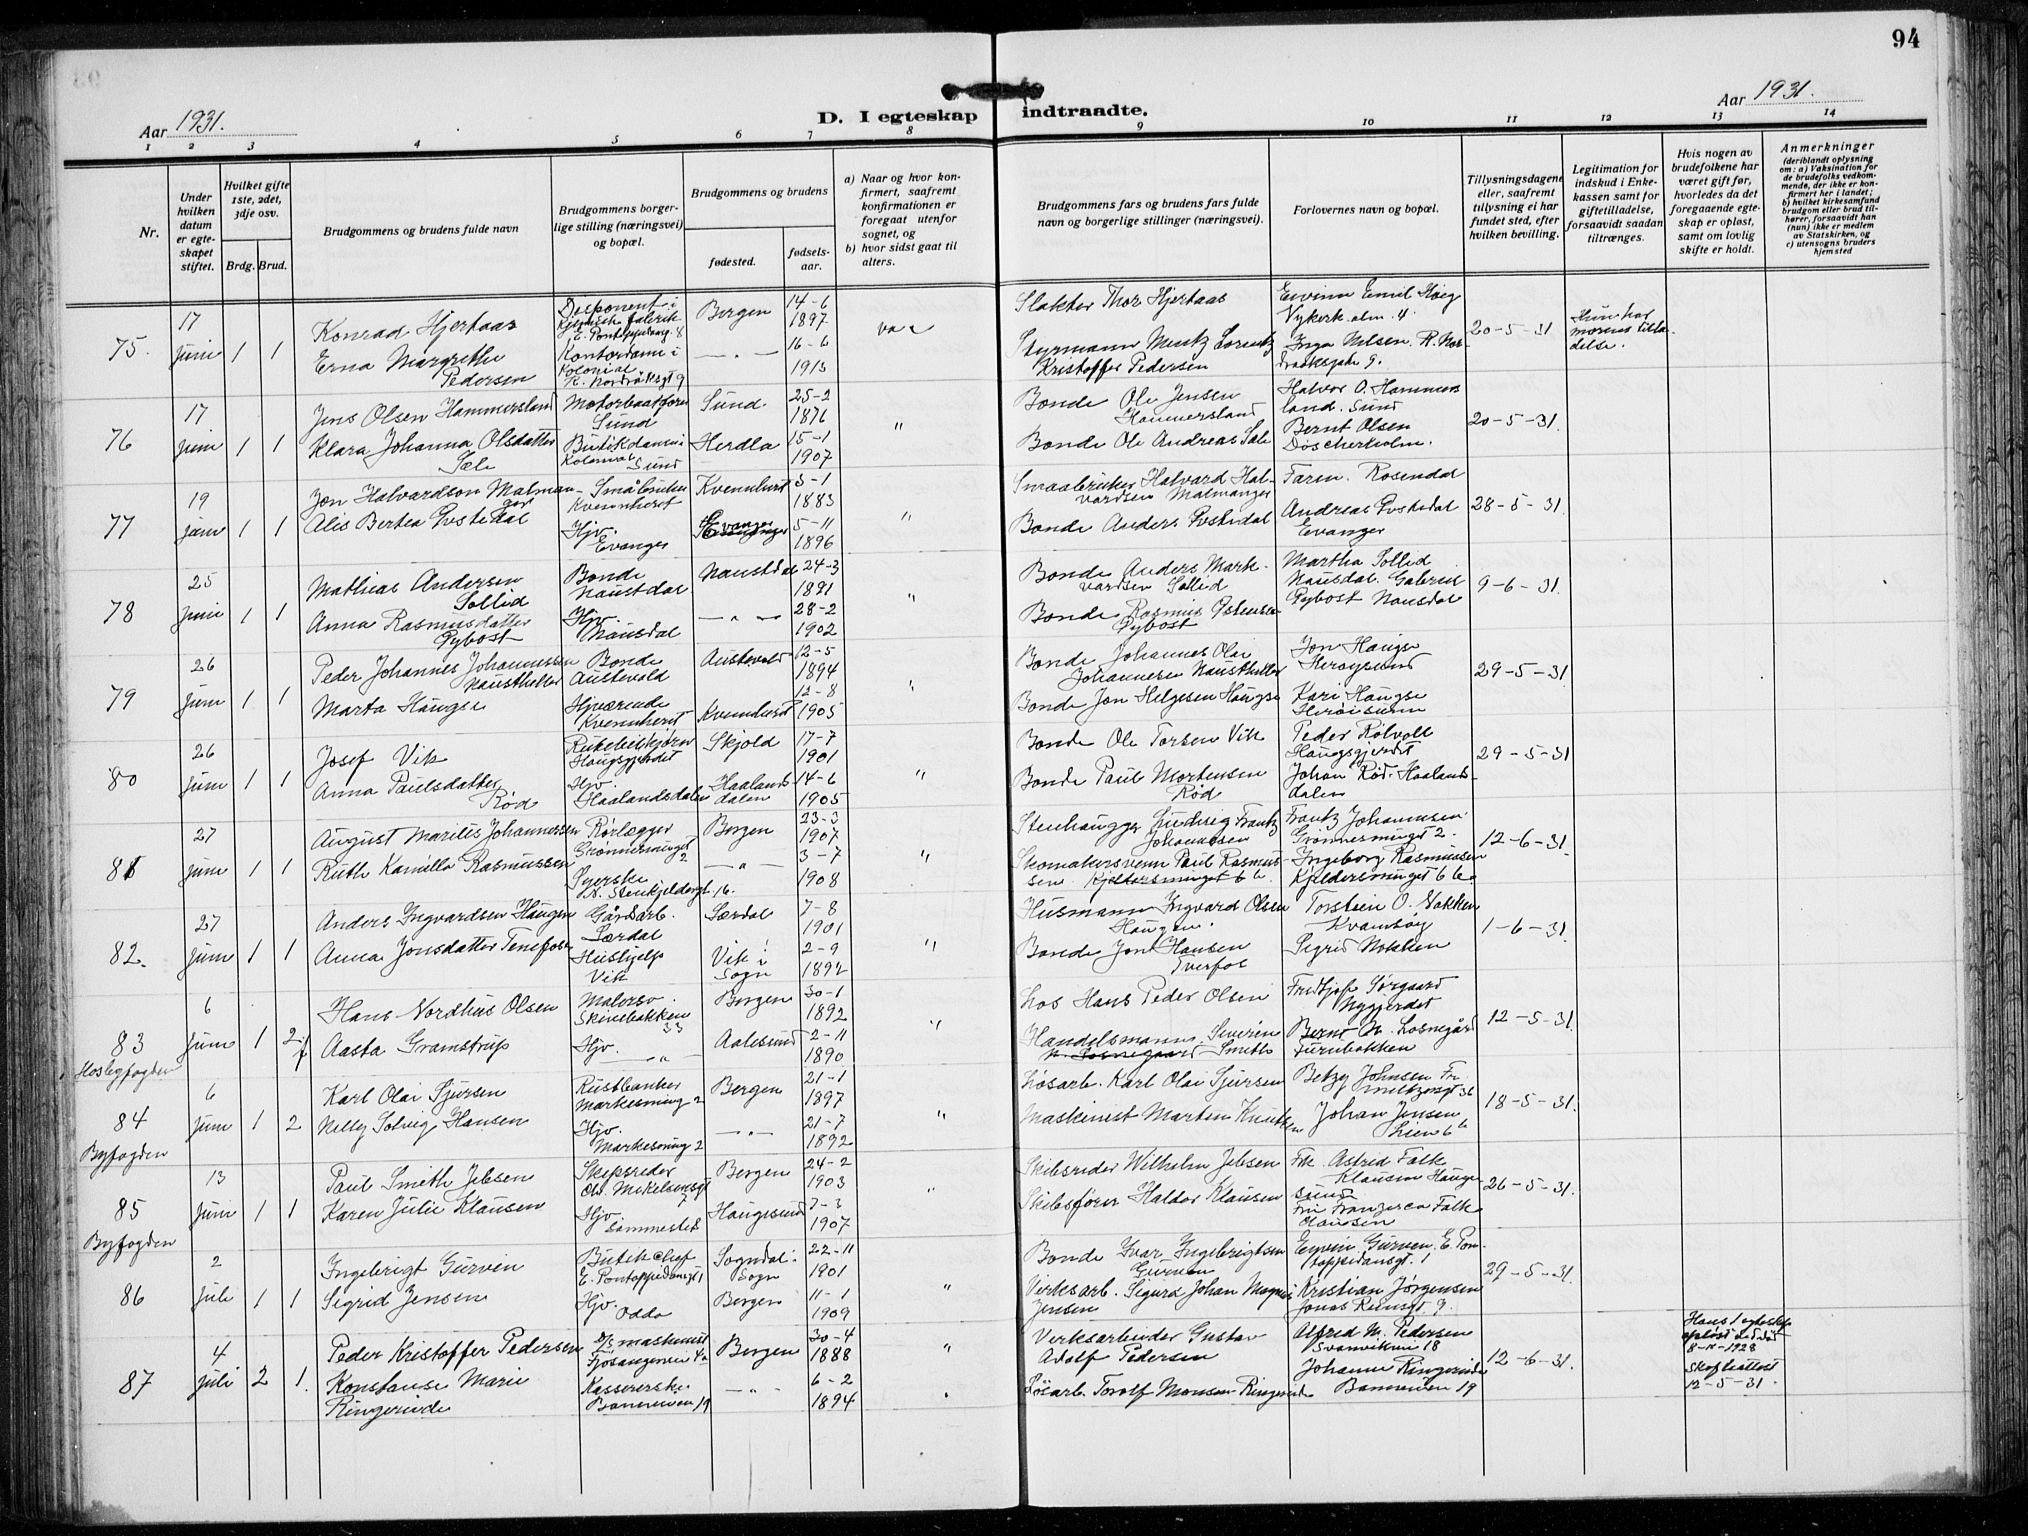 94
Aar 1931.
D. I egteskap indtraadte.
Aar 1931.
1 2 3 4 5 6 7 8 9 10 11 12 13 14
Nr.
Under hvilken datum er egteskapet stiftet.
Hvilket gifte 1ste, 2det, 3dje osv.
Brdg. Brud.
Brudgommens og brudens fulde navn
Brudgommens borgerlige stilling (næringsvei) og bopæl.
Brudgommens og brudens
fødested.
fødselsaar.
a) Naar og hvor konfirmert, saafremt konfirmationen er foregaat utenfor sognet, og
b) hvor sidst gaat til alters.
Brudgommens fars og brudens fars fulde navn og borgerlige stillinger (næringsvei).
Forlovernes navn og bopæl.
Tillysningsdagene eller, saafremt tillysning ei har fundet sted, efter hvilken bevilling.
Legitimation for indskud i Enkekassen samt for giftetilladelse, forsaavidt saadan tiltrænges.
Hvis nogen av brudefolkene har været gift før, hvorledes da det foregaaende egteskap er opløst, samt om lovlig skifte er holdt.
Anmerkninger
(deriblandt oplysning om: a) Vaksination for de brudefolks vedkommende, der ikke er konfirmert her i landet; b) hvilket kirkesamfund brudgom eller brud tilhører, forsaavidt han (hun) ikke er medlem av Statskirken, og c) utensogns bruders hjemsted
75. 17 Juni 1 1
Konrad Hjertaas
Disponent i
E. Pontoppidansg. 8
Bergen 14-6 1897
Slakter Thor Hjertaas
Vykerk. alm. 4.
20-5-31
Erna Margrethe Pedersen
Kontordame i Kolonial
R. Nordråksgt 9
— " — 16-6 1913
Styrmann Mentz Lorentz Kristoffer Pedersen
Inga Nelsen. R. Nordraaksgate 9.
76 17 Juni 1 1
Jens Olsen Hammersland
Motorbaatfører Sund
Sund. 25-2 1876
"
Bonde Ole Jensen Hammersland
Halvor O. Hammersland. Sund
20-5-31.
Klara Johanna Olsdatter Sæle
Butikdame i Kolonial Sund
Herdla 15-1 1907
Bonde Ole Andreas Sæle
Bernt Olsen
77 19 Juni 1 1
Jon Halvardson Malmanger
Småbruker Kvennherst
Kvennherst 3-1 1883
"
Smaabruker Halvard Halvardsen Malmanger
Faren. Rosendal
28-5-31.
Alis Bertea
Hjv. Evanger
Evanger 5-11 1896
Bonde Anders
Andreas
Evanger
78 25 Juni 1 1
Mathias Andersen Sollid
Bonde Naustdal
Naustdal 24-3 1891
"
Bonde Anders Markvardsen Sollid
Martha Sollid
Nausdal. Gabriel
9-6-31.
Anna Rasmusdatter Gybost
Hjv. Nausdal
— " — 28-2 1902
Bonde Rasmus Gybost
Gybost Nausdal
79 26 Juni 1 1
Peder Johannes Johannessen Naustheller
Bonde Austevold
Austevold 12-5 1894
"
Bonde Johannes Olai Johannesen Naustheller
Jon Haugse
29-5-31
Marta Haugse
Hjværende Kvennherst
Kvennherst 12-8 1905
Bonde Jon Helgesen Haugse
Kari Haugse
80 26 Juni 1 1
Josef Vik
Rutebilskjører Haugsgjerdet
Skjold 17-7 1901
"
Bonde Ole Torsen Vik
Peder Rølvoll
Haugsgjerdet
29-5-31
Anna Paulsdatter Rød
Hjv. Haalandsdalen
Haalandsdalen 14-6 1905
Bonde Paul Mortensen Rød
Johan Rød. Haalandsdalen
81 27 Juni 1 1
August Marius Johannessen
Rørlægger
2
Bergen 23-3 1907
"
Stenhugger Ludvig Frantz Johannesen
Frantz Johannesen
2.
12-6-31.
Ruth Kamilla Rasmussen
Syerske
N. Stenkjeldergt. 16.
— " — 3-7 1908
Skomakersvenn Paul Rasmussen. Kjeldersmuget 6 b.
Ingeborg Rasmussen
Kjeldersmuget 6 b.
82. 27 Juni 1 1
Anders Ingvardsen Haugen
Gårdsarb. Lærdal
Lærdal 7-8 1901
"
Husmann Ingvard Olsen Haugen.
Torstein O. Nokken
Kvamsøy
1-6-31.
Anna Jonsdatter Tenefoss
Hushjelp Vik
Vik i Sogn 2-9 1892
Bonde Jon Hansen
Sigrid Nokken
83 6 Juni 1 2
Hos byfogden
Hans Nordhus Olsen
Malersv. Skivebakken 33
Bergen 30-1 1892
"
Los Hans Peder Olsen
Fridtjof Sørgaard
Nygjerdet
12-5-31.
Aasta Gramstrup
Hjv. — " —
Aalesund 2-11 1890
Handelsmann. Severin Smith
Bernt N. Losnegård
84 6 Juni 1 2
Byfogden
Karl Olai Sjursen
Rustbanker
Markesmug 2
Bergen 21-1 1897
"
Løsarb. Karl Olai Sjursen
Betzy Johnsen
18-5-31.
Nelly Solvig Hansen
Hjv. Markesmug 2
— " — 21-7 1892
Maskinist Marten Knutzen
Johan Jensen
Lien 6 b
85 13 Juni 1 1
Byfogden
Paul Smith Jebsen
Skipsreder
Chr. Mikelsensgt 7
Bergen 24-2 1903
"
Skibsreder Wilhelm Jebsen
Frk. Astrid Falk Klausen Haugesund
26-5-31.
Karen Julie Klausen
Hjv. sammested
Haugesund 3-3 1907
Skibsfører Haldor Klausen
Fru Franzisca Falk Clausen
86 2 Juli 1 1
Ingebrigt Gurvin
Butikchef
E. Pontoppidansgt 1
Sogndal i Sogn 22-11 1901
"
Bonde Ivar Ingebrigtsen Gurvin
Eyvin Gurven. E. Pontoppidansgt. 1
29-5-31.
Sigrid Jensen
Hjv. Odda
Bergen 11-1 1909
Verksarb. Sigurd Johan Magnus Jensen
Kristian Jørgensen
Jonas Reinsgt. 9.
87 4 Juli 2 1.
Peder Kristoffer Pedersen
D/S maskinist
Fjøsangerveien 4a
Bergen 30-4 1888
"
Verksarbeider Gustav Adolf Pedersen
Alfred M. Pedersen
Svanvikvn 18
12-6-31.
Hans 1 egteskap opløst ved død 8-11-1928
Skifteattest 12-5-31.
Konstanse Marie Ringerude
Kassererske
Banneveien 19
— " — 6-2 1894
Løsarb. Torolf Monsen Ringerude
Johanne Ringerude
Banneveien 19